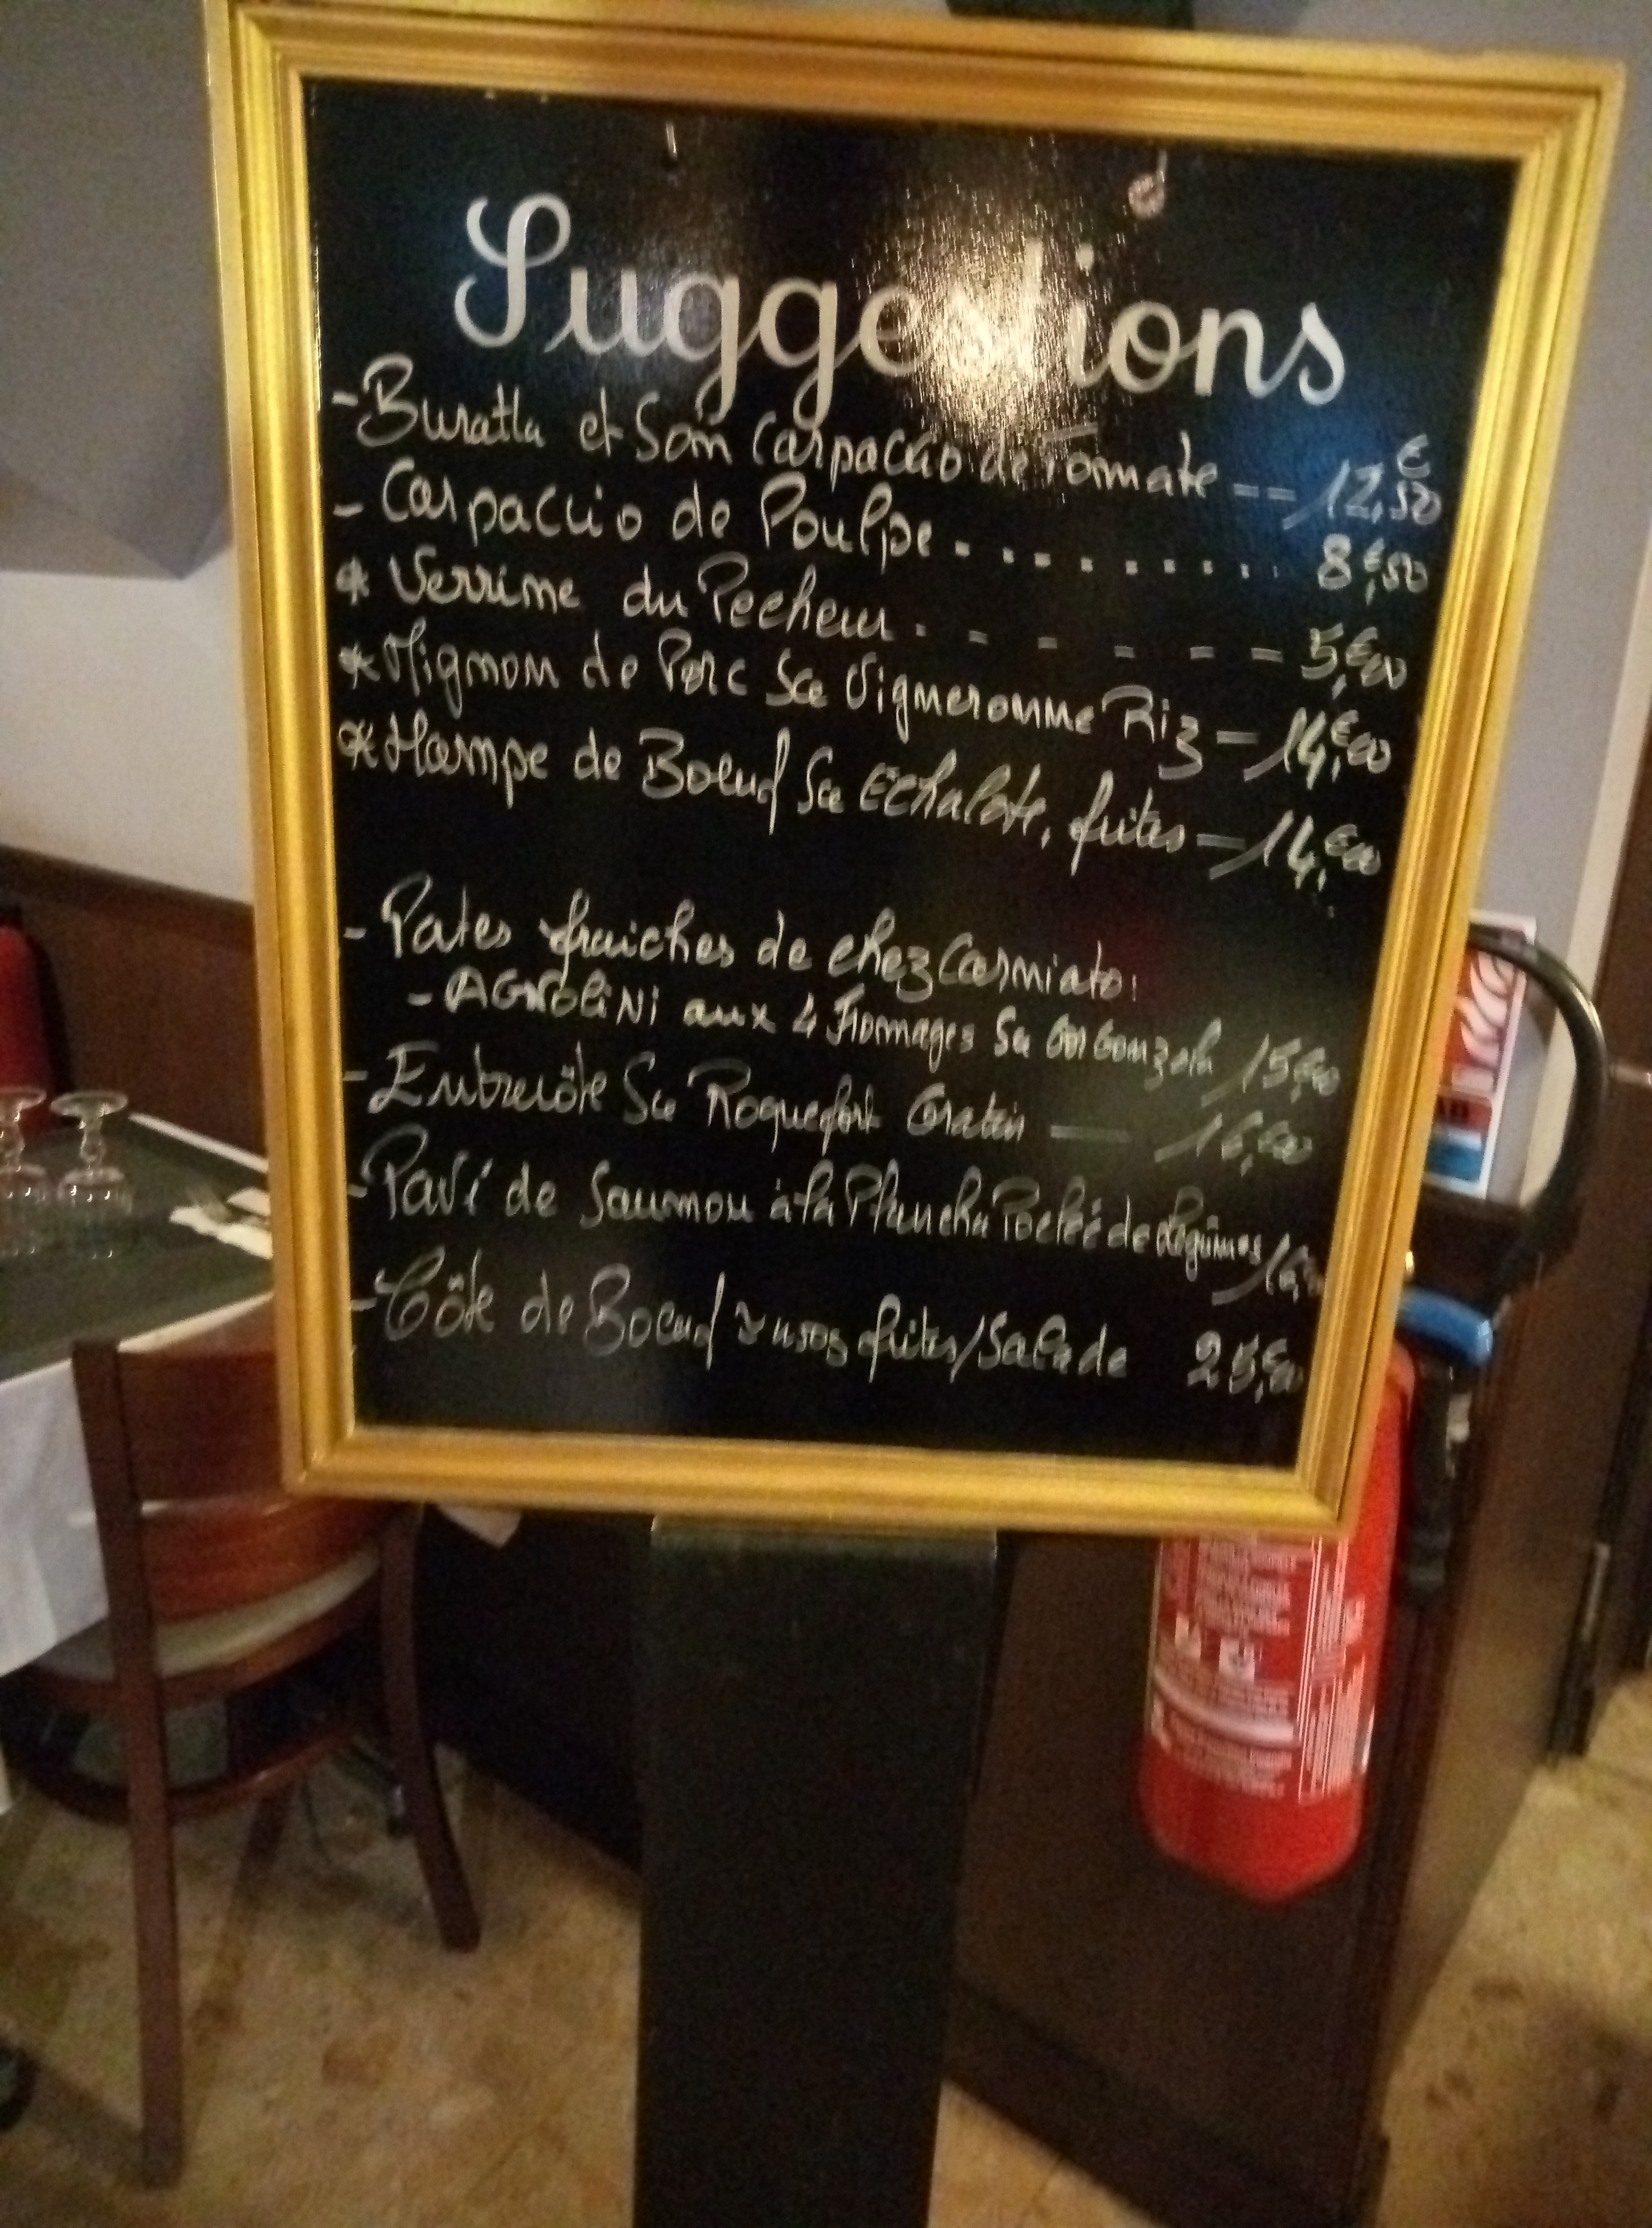 Suggestions
- Buratta et Son Carpaccio de Tomate -- 12,€50
- Carpaccio de Poulpe . . . . . . . . . 8,€50
* Verrine du Pecheur . - - - - - 5,€00
* Mignon de Porc Sce Vigneronne Riz - 14,€00
* Hampe de Boeuf Sce Echalote, frites - 14,€00
- Pates fraiches de chez Carniato:
- AGNOLiNi aux 4 Fromages Sce GorGonzola 15,€00
- Entrecôte Sce Roquefort Gratin — 16,€00
- Pavé de Saumon à la Plancha Poêlée de Légumes
- Côte de Boeuf frites/Salade 25,€00